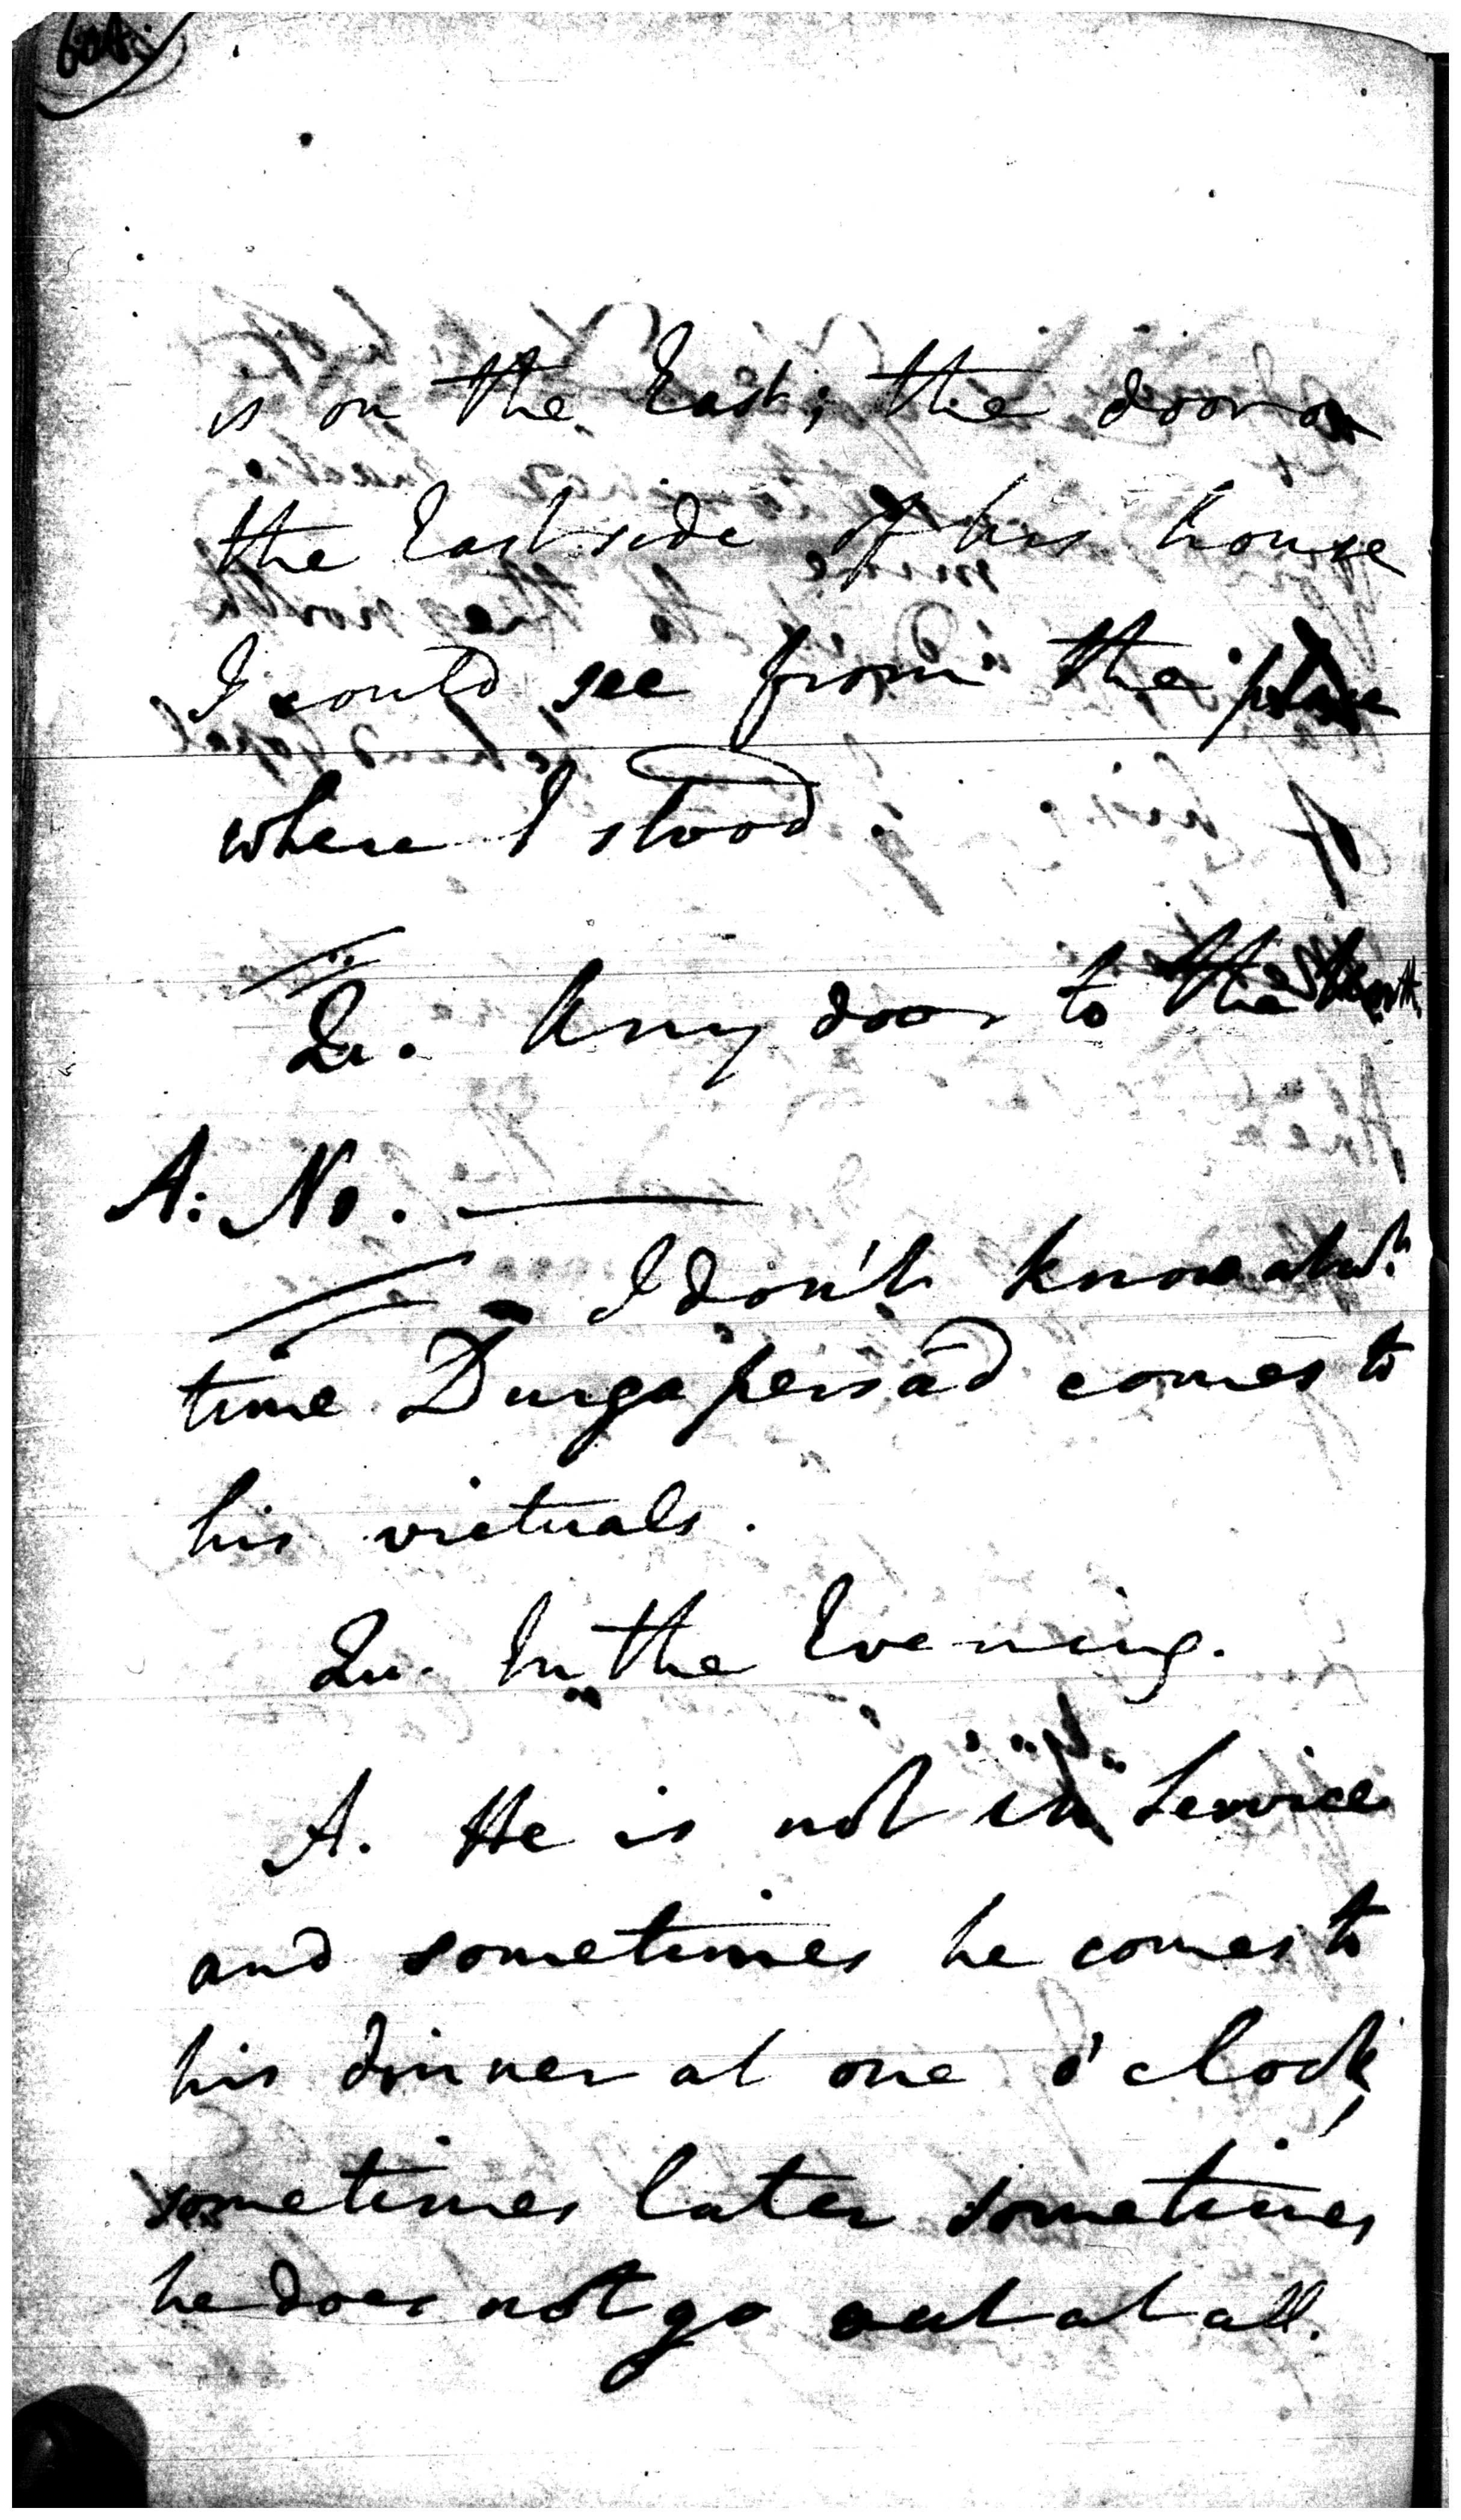 is on the East; the door on
the East side of his house
I could see from the place
where I stood.
Qu. Any door to the
A: No.
I don't know what
time Durgapersad comes to
his victuals.
Qu. In the Evening.
A. He is not in Service
and sometimes he comes to
his dinner at one o'clock,
sometimes later sometimes
he does not go out at all.